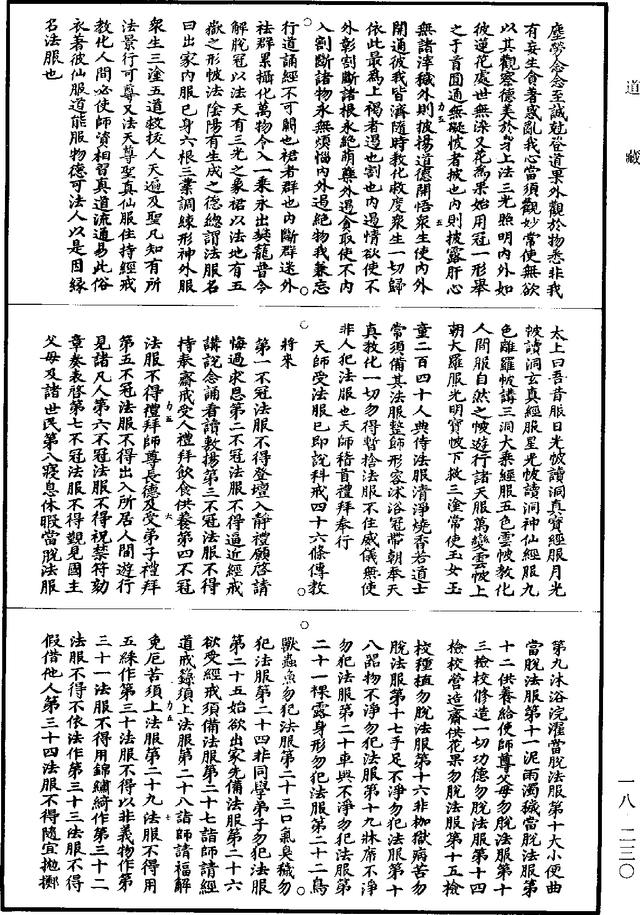 道藏
一八·二三〇
塵勞念念至誠尅登道果外觀於物悉非我
有妄生貪著惑亂我心當須觀妙常使無欲
以其觀察德美於身上法三光照明內外如
彼蓮花處世無染又花為果始用冠一形舉
之于首圓通無礙帔者披也內則披露肝心
無諸滓穢外則披揚道德開悟衆生使內外
開通彼我皆濟隨時教化救度衆生一切歸
依此最為上褐者遏也割也內遏情欲使不
外彰割斷諸根永絕萌蘖外遏貪取使不內
入割斷諸物永無煩惱內外遏絕物我兼忘
行道誦經不可闕也裙者群也內斷群迷外
祛群累攝化萬物令入一乘永出樊籠普令
解脫冠以法天有三光之象裙以法地有五
嶽之形帔法陰陽有生成之德總謂法服名
曰出家內服己身六根三業調練形神外服
衆生三塗五道救拔人天遍及聖凡知有所
法景行可尊又法天尊聖真仙服住持經戒
教化人間必使師資相習真道流通易此俗
衣著彼仙服道能服物德可法人以是因緣
名法服也
太上曰吾昔服日光帔讀洞真寶經服月光
帔讀洞玄真經服星光帔讀洞神仙經服九
色離羅帔講三洞大乘經服五色雲帔教化
人間服自然之帔遊行諸天服萬變雲帔上
朝大羅服光明寶帔下救三塗常使玉女玉
童二百四十人典侍法服清淨燒香若道士
當須備其法服整飾形容沐浴冠帶朝奉天
真教化一切勿得暫捨法服不住威儀無使
非人犯法服也天師稽首禮拜奉行
天師受法服已即說科戒四十六條傳教
將來
第一不冠法服不得登壇入靜禮願啓請
悔過求恩第二不冠法服不得逼近經戒
講說念誦看讀敷揚第三不冠法服不得
持奉齋戒受人禮拜飲食供養第四不冠
法服不得禮拜師尊長德及受弟子禮拜
第五不冠法服不得出入所居人間遊行
見諸凡人第六不冠法服不得祝禁符劾
章奏表啓第七不冠法服不得覲見國主
父母及諸世民第八寢息休暇當脫法服
第九沐浴浣濯當脫法服第十大小便曲
當脫法服第十一泥雨濁穢當脫法服第
十二供養給使師尊父母勿脫法服第十
三檢校修造一切功德勿脫法服第十四
檢校營造齋供花果勿脫法服第十五檢
校種植勿脫法服第十六非枷獄病苦勿
脫法服第十七手足不淨勿犯法服第十
八器物不淨勿犯法服第十九牀席不淨
勿犯法服第二十車輿不淨勿犯法服第
二十一倮露身形勿犯法服第二十二鳥
獸蟲魚勿犯法服第二十三口氣臭穢勿
犯法服第二十四非同學弟子勿犯法服
第二十五始欲出家先備法服第二十六
欲受經戒須備法服第二十七諸師請經
道戒錄須上法服第二十八諸師請福解
免厄苦須上法服第二十九法服不得用
五綵作第三十法服不得以非義物作第
三十一法服不得用錦繡綺作第三十二
法服不得不依法作第三十三法服不得
假借他人第三十四法服不得隨宜拋擲